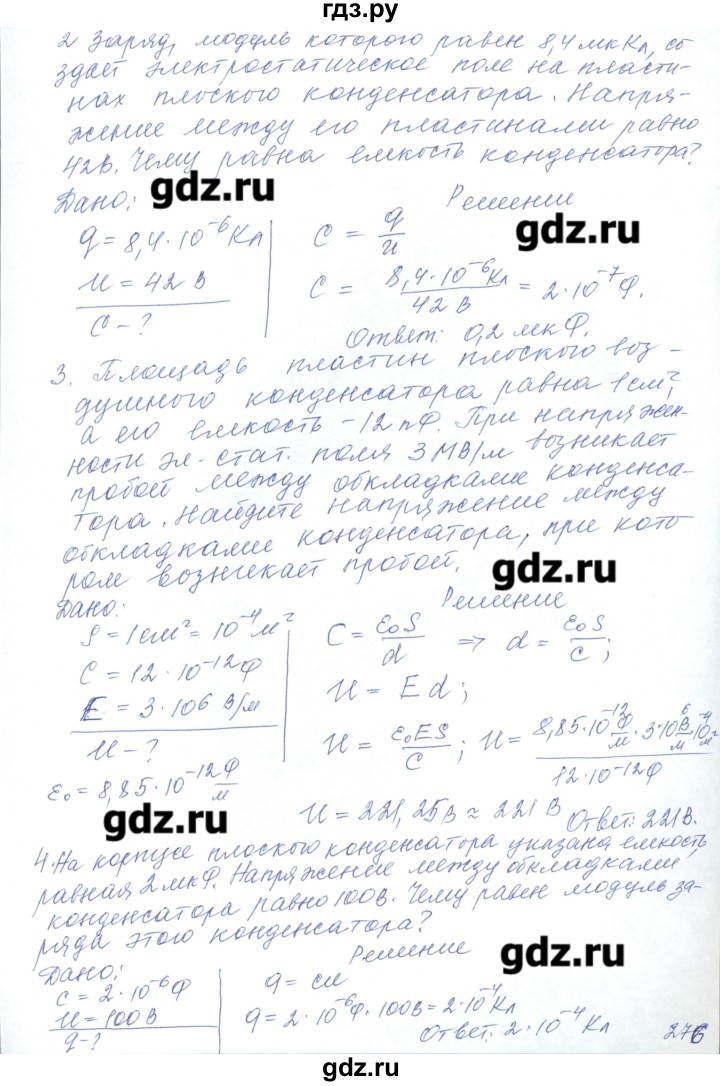 гдз.ру
2 Заряд, модуль которого равен 8,4 мкКл, со
здаёт электростатическое поле на пласти-
нах плоского конденсатора. Напря-
жение между его пластинами равно
42В. Чему равна емкость конденсатора?
Дано: Решении
gdz.ru
gdz.ru
q = 8,4·10⁻⁶Кл C = q/u
u = 42 В C = 8,4·10⁻⁶Кл/42 В = 2·10⁻⁷Ф.
C - ?
Ответ: 0,2 мкФ.
3. Площадь пластин плоского воз-
душного конденсатора равна 1см²,
а его емкость - 12 пФ. При напряжен-
ности эл-стат. поля 3 МВ/м возникает
пробой между обкладками конденса-
тора. Найдите напряжение между
обкладками конденсатора, при кото
ром возникает пробой.
gdz.ru
Дано: Решение
S = 1см² = 10⁻⁴м² C = ε₀S/d => d = ε₀S/C;
C = 12·10⁻¹²Ф u = Ed;
E = 3·10⁶ В/м u = ε₀ES/C; u = 8,85·10⁻¹²Ф/м·3·10⁶В/м·10⁻⁴/12·10⁻¹²Ф
u - ?
ε₀ = 8,85·10⁻¹²Ф/м
gdz.ru
u = 221,25В ≈ 221 В Ответ: 221В.
4. На корпусе плоского конденсатора указана емкость,
равная 2 мкФ. Напряжение между обкладками
конденсатора равно 100В. Чему равен модуль за-
ряда этого конденсатора?
Дано: Решение
gdz.ru
C = 2·10⁻⁶Ф q = cu
u = 100 В q = 2·10⁻⁶Ф·100В = 2·10⁻⁴Кл
q - ? Ответ: 2·10⁻⁴ Кл
276
gdz.ru